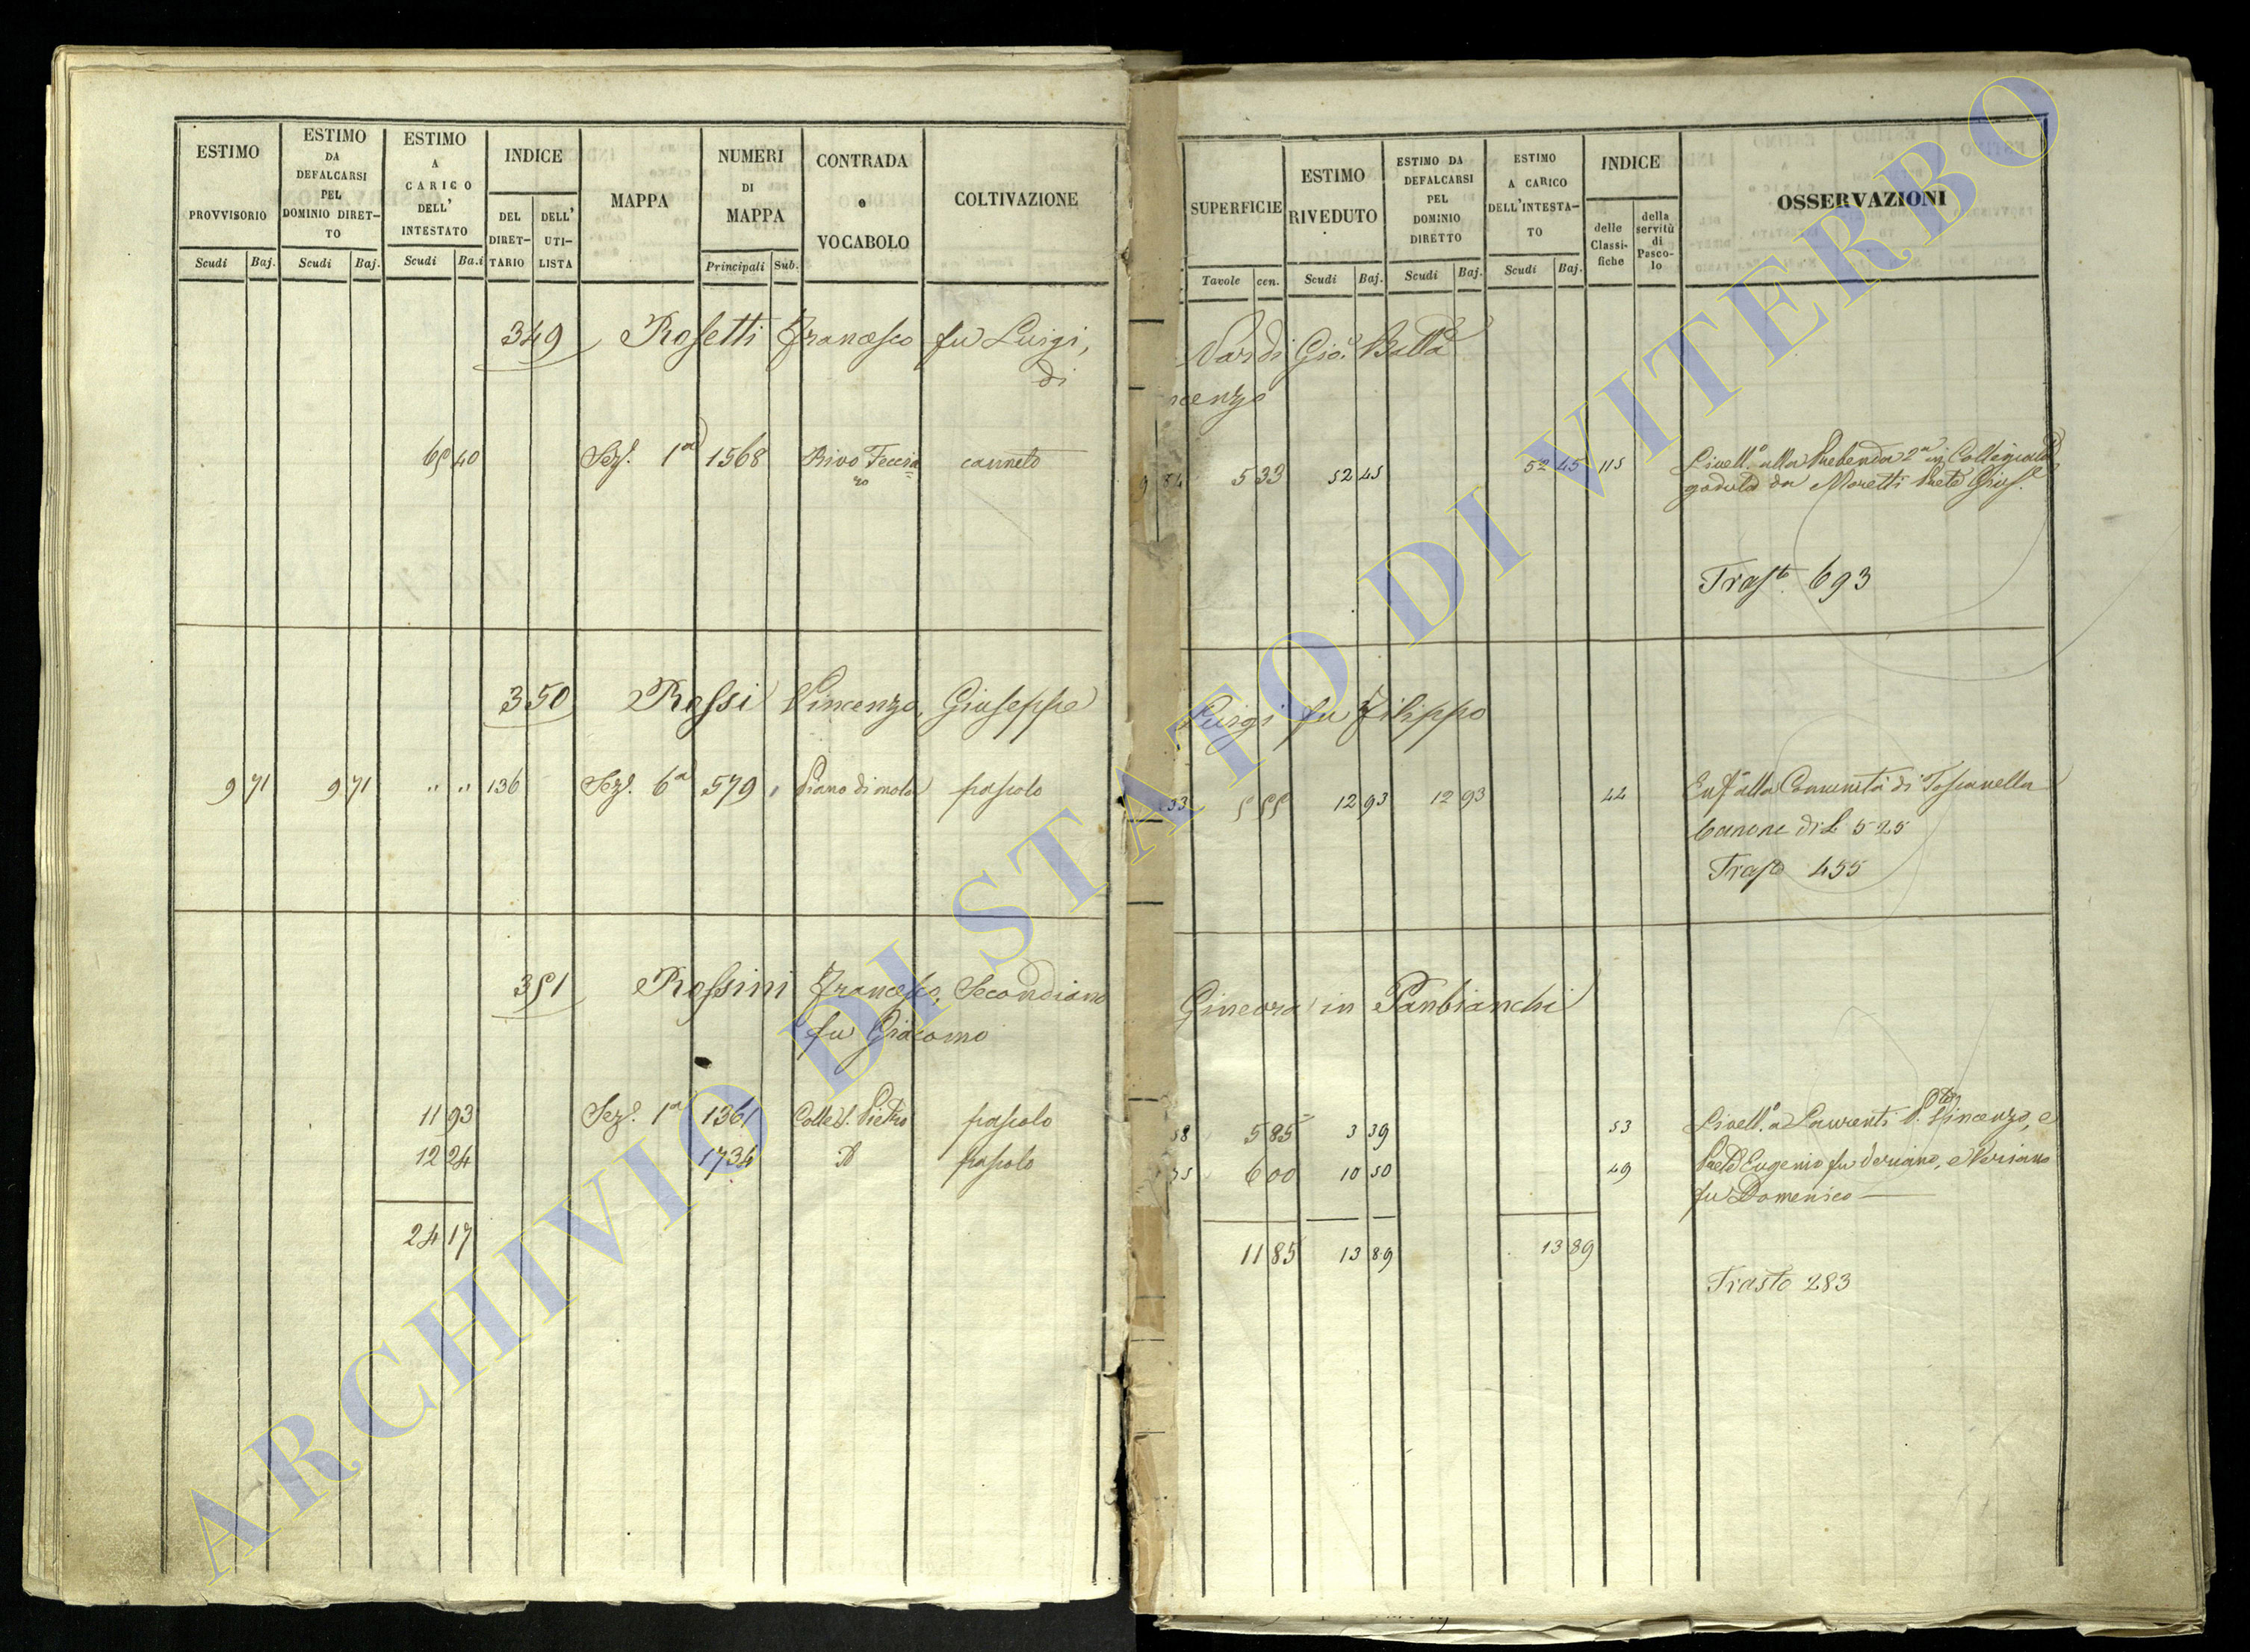 ESTIMO PROVVISORIO
Scudi Baj.
ESTIMO DA DEFALCARSI PEL DOMINIO DIRET-TO
Scudi Baj.
ESTIMO A CARICO DELL' INTESTATO
Scudi Ba.i
INDICE
DEL DIRET-TARIO
DELL' UTI-LISTA
MAPPA
NUMERI DI MAPPA
Principali Sub.
CONTRADA e VOCABOLO
COLTIVAZIONE
349 Rossetti Francesco fu Luigi,
di
65 40 Sez.e 1a 1568 Rivo canneto
350 Rossi Vincenzo, Giuseppe
9 71 9 71 " " 136 Sez.e 6a 579 Piano di mola pascolo
351 Rossini Francesco, Secondiano
fu Giacomo
11 93 Sez.e 1a 1361 Colle S. Pietro pascolo
12 24 1734 pascolo
24 17
SUPERFICIE
Tavole cen.
ESTIMO RIVEDUTO
Scudi Baj.
ESTIMO DA DEFALCARSI PEL DOMINIO DIRETTO
Scudi Baj.
ESTIMO A CARICO DELL'INTESTA-TO
Scudi Baj.
INDICE
delle Classi-fiche
della servitù di Pasco-lo
OSSERVAZIONI
Nardi Gio. Batta
ncenzo
84 5 33 52 45 52 45 115 Livell.o alla Prebenda 2a
goduta da Moretti Prete Gius.e
Trasto 693
Luigi fu Filippo
33 5 55 12 93 12 93 44 Enf.a alla Comunità di Toscanella
Canone di L 525
Trasto 455
Ginevra in Panbianchi
58 5 85 3 39 53 Livell.o a Laurenti Vincenzo, e
6 00 10 50 49 Eugenio fu Veriano, e Veriano
fu Domenico
11 85 13 89 13 89
Trasto 283
ARCHIVIO DI STATO DI VITERBO